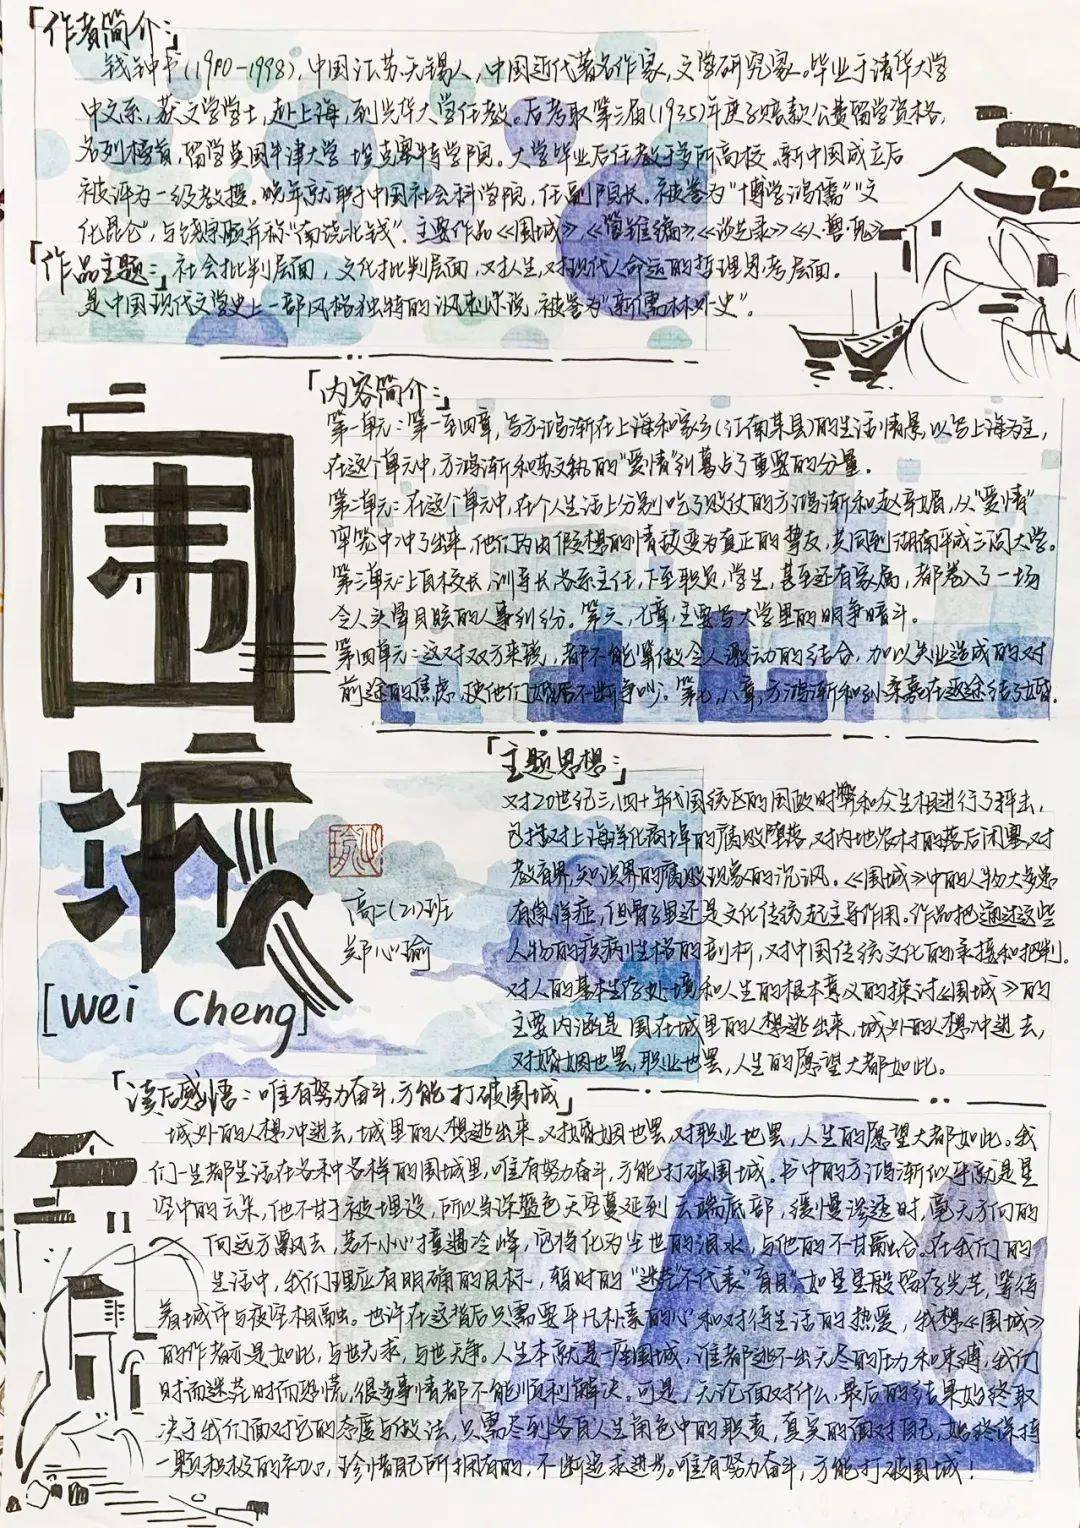 「作者简介:」
钱钟书(1910-1998),中国江苏无锡人,中国近代著名作家,文学研究家。毕业于清华大学
中文系,获文学学士,赴上海,到光华大学任教。后考取第三届(1935)年庚子赔款公费留学资格,
名列榜首,留学英国牛津大学埃克塞特学院。大学毕业后任教于多所高校。新中国成立后
被评为一级教授。晚年就职于中国社会科学院,任副院长。被誉为“博学鸿儒”“文
化昆仑”,与饶宗颐并称“南饶北钱”.主要作品《围城》,《管锥编》,《谈艺录》《人·兽·鬼》
「作品主题:」社会批判层面,文化批判层面,对人生,对现代人命运的哲理思考层面.
是中国现代文学史上一部风格独特的讽刺小说,被誉为“新儒林外史”.
「内容简介:」
第一单元:第一至四章,写方鸿渐在上海和家乡(江南某县)的生活情景,以写上海为主,
在这个单元中,方鸿渐和苏文纨的“爱情”纠葛占了重要的分量.
第二单元:在这个单元中,在个人生活上分别吃了败仗的方鸿渐和赵辛楣,从“爱情”
牢笼中冲了出来,他们为由假想的情敌变为真正的挚友,共同到湖南平成三闾大学。
第三单元:上自校长,训导长,各系主任,下至职员,学生,甚至还有家属,都卷入了一场
令人头晕目眩的人事纠纷。第六,七章,主要写大学里的明争暗斗。
第四单元:这对双方来说,都不能算做令人激动的结合,加以失业造成的对
前途的焦虑,使他们婚后不断争吵。第七,八章,方鸿渐和孙柔嘉在返途结了婚.
围城
[Wei Cheng]
高二(21)班
郑心瑜
「主题思想:」
对20世纪三,四十年代国统区的国政时弊和众生相进行了抨击,
包括对上海洋化商埠的腐败堕落,对内地农村的落后闭塞,对
教育界,知识界的腐败现象的讥讽。《围城》中的人物大多患
有崇洋症,但骨子里还是文化传统起主导作用。作品把通过这些
人物的疾病性格的剖析,对中国传统文化的承接和批判.
对人的基本生存处境和人生的根本意义的探讨《围城》的
主要内涵是围在城里的人想逃出来,城外的人想冲进去,
对婚姻也罢,职业也罢,人生的愿望大都如此。
「读后感悟:唯有努力奋斗,方能打破围城」
城外的人想冲进去,城里的人想逃出来。对婚姻也罢,对职业也罢,人生的愿望大都如此。我
们一生都生活在各种各样的围城里,唯有努力奋斗,方能打破围城。书中的方鸿渐似乎就是星
空中的云朵,他不甘于被埋没,所以当深蓝色天空蔓延到云端底部,缓慢渗透时,毫无方向的
向远方飘去,若不小心撞遇冷峰,它将化为尘世的泪水,与他的不甘融合。在我们的
生活中,我们理应有明确的目标,暂时的“迷茫”不代表“盲目”,如星星般留存光芒,等待
着城市与夜空相融。也许在这背后只需要平凡朴素的心和对待生活的热爱,我想《围城》
的作者亦是如此,与世无求,与世无争。人生本就是一座围城,谁都逃不出无尽的压力和束缚,我们
时而迷茫时而恐慌,很多事情都不能顺利解决。可是,无论面对什么,最后的结果始终取
决于我们面对它的态度与做法,只需尽到各自人生角色中的职责,真实的面对自己,始终保持
一颗积极的初心,珍惜自己所拥有的,不断追求进步。唯有努力奋斗,方能打破围城!